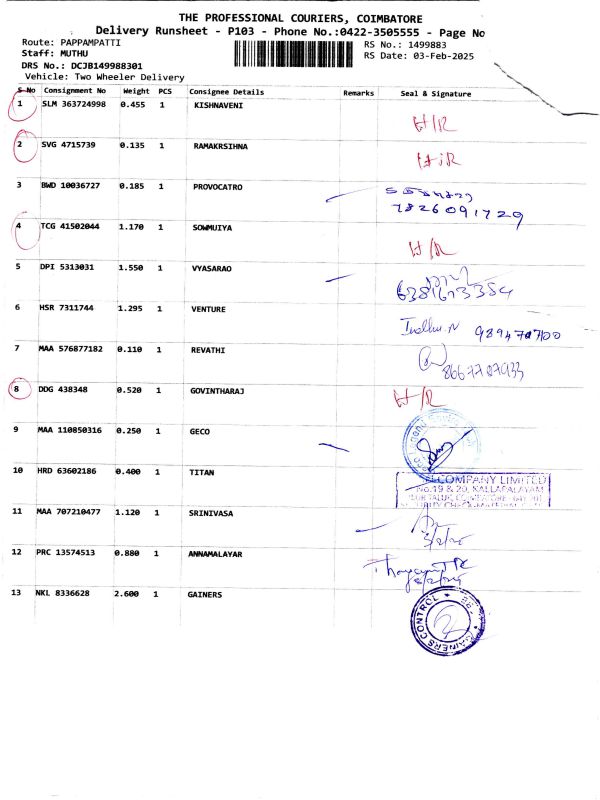 THE PROFESSIONAL COURIERS, COIMBATORE
Delivery Runsheet - P103 - Phone No.:0422-3505555 - Page No
Route: PAPPAMPATTI
RS No.: 1499883
Staff: MUTHU
RS Date: 03-Feb-2025
DRS No.: DCJB149988301
Vehicle: Two Wheeler Delivery
S No Consignment No Weight PCS Consignee Details Remarks Seal & Signature
1 SLM 363724998 0.455 1 KISHNAVENI
H/R
2 SVG 4715739 0.135 1 RAMAKRSIHNA
H/R
3 BWD 10036727 0.185 1 PROVOCATRO
7826091729
4 TCG 41502044 1.170 1 SOWMUIYA
H/R
5 DPI 5313031 1.550 1 VYASARAO
6 HSR 7311744 1.295 1 VENTURE
Indhu.N
7 MAA 576877182 0.110 1 REVATHI
8 DDG 438348 0.520 1 GOVINTHARAJ
H/R
9 MAA 110850316 0.250 1 GECO
10 HRD 63602186 0.400 1 TITAN
COMPANY LIMITED
No.19 & 20, KALLAPALAYAM
11 MAA 707210477 1.120 1 SRINIVASA
3/2/25
12 PRC 13574513 0.880 1 ANNAMALAYAR
13 NKL 8336628 2.600 1 GAINERS
GAINERS CONTROL